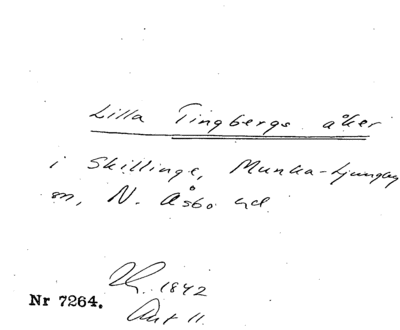 Lilla Tingbergs åker
i Skillinge, Munka-Ljungby
sn, N. Åsbo hd.
1842
Nr 7264.
Akt 11.